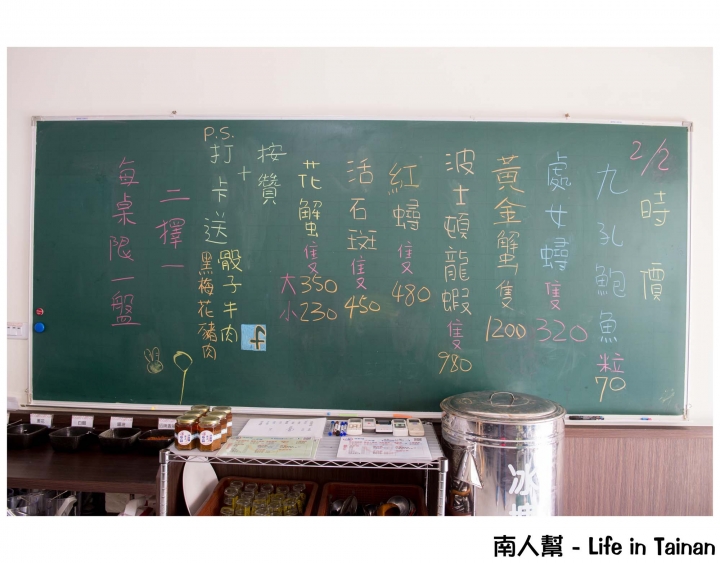 2/2
時價
九孔鮑魚 粒 70
處女蟳 隻 320
黃金蟹 隻 1200
波士頓龍蝦 隻 980
紅蟳 隻 480
活石斑 隻 450
花蟹 隻
大 350
小 230
P.S.
按讚
+
打卡送
骰子牛肉
黑梅花豬肉
二擇一
每桌限一盤
f
冰
南人幫 - Life in Tainan